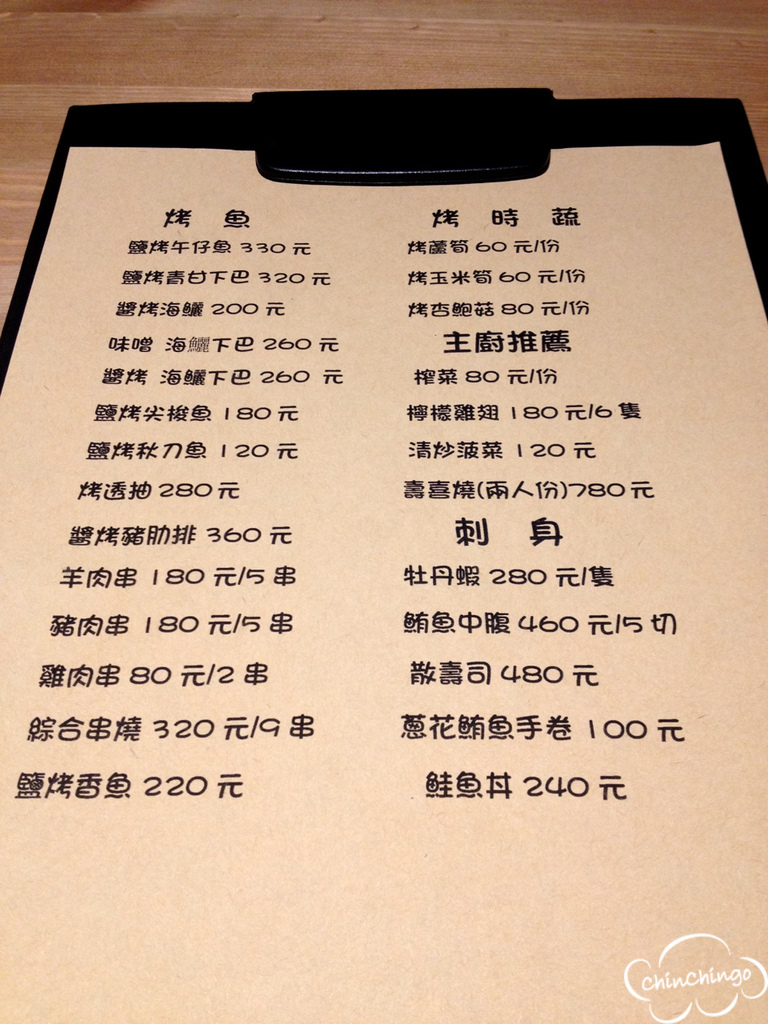 烤 魚
鹽烤午仔魚 330 元
鹽烤青甘下巴 320 元
醬烤海鱺 200 元
味噌 海鱺下巴 260 元
醬烤 海鱺下巴 260 元
鹽烤尖梭魚 180 元
鹽烤秋刀魚 120 元
烤透抽 280 元
醬烤豬肋排 360 元
羊肉串 180 元/5 串
豬肉串 180 元/5 串
雞肉串 80 元/2 串
綜合串燒 320 元/9 串
鹽烤香魚 220 元
烤 時 蔬
烤蘆筍 60 元/份
烤玉米筍 60 元/份
烤杏鮑菇 80 元/份
主廚推薦
榨菜 80 元/份
檸檬雞翅 180 元/6 隻
清炒菠菜 120 元
壽喜燒(兩人份)780 元
刺 身
牡丹蝦 280 元/隻
鮪魚中腹 460 元/5 切
散壽司 480 元
蔥花鮪魚手卷 100 元
鮭魚丼 240 元
ChinChingo